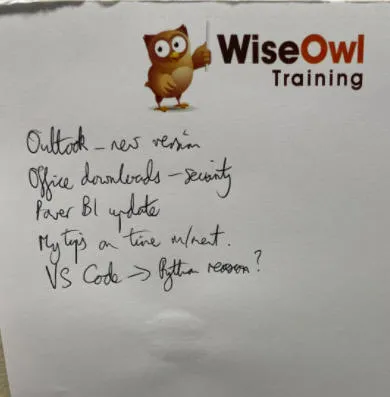 WiseOwl
Training
Outlook – new version
Office downloads – security
Power BI update
My tips on time m/ment.
VS Code → Python version?